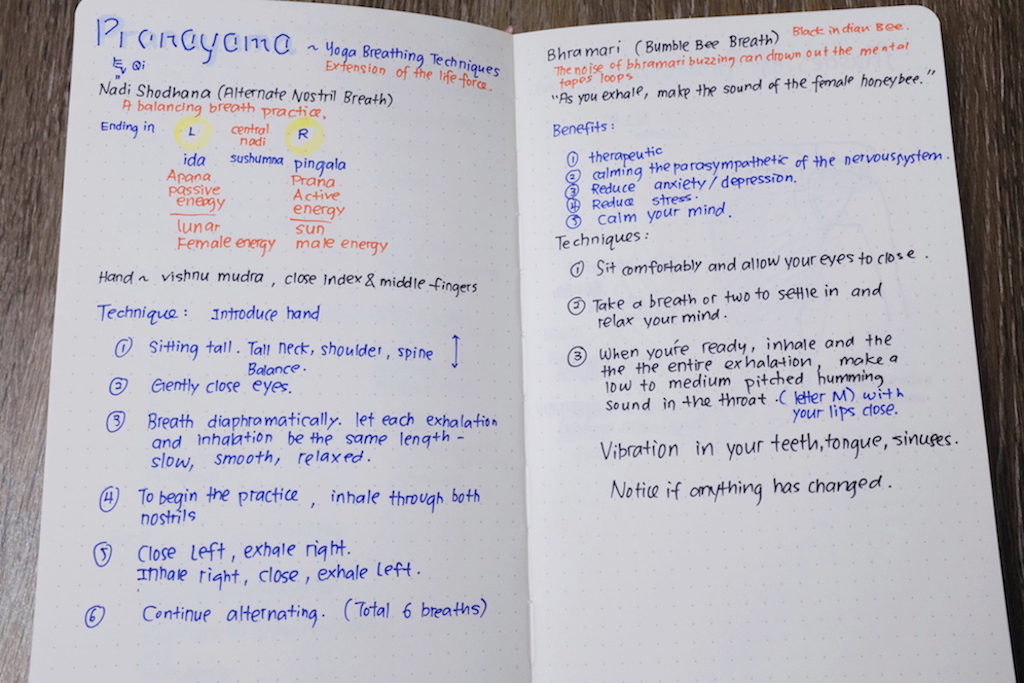 Pranayama ~ Yoga Breathing Techniques
Qi Extension of the life force.
Nadi Shodhana (Alternate Nostril Breath)
A balancing breath practice.
Ending in L central R
nadi
ida sushumna pingala
Apana Prana
passive Active
energy energy
lunar sun
Female energy male energy
Hand ~ vishnu mudra, close index & middle fingers
Technique: Introduce hand
① Sitting tall. Tall neck, shoulder, spine
Balance.
② Gently close eyes.
③ Breath diaphramatically. let each exhalation
and inhalation be the same length -
slow, smooth, relaxed.
④ To begin the practice, inhale through both
nostrils
⑤ Close left, exhale right.
Inhale right, close, exhale left.
⑥ Continue alternating. (Total 6 breaths)
Bhramari (Bumble Bee Breath) Black indian Bee.
The noise of bhramari buzzing can drown out the mental
tapes loops
"As you exhale, make the sound of the female honeybee."
Benefits:
① therapeutic
② calming the parasympathetic of the nervous system.
③ Reduce anxiety/depression.
④ Reduce stress.
⑤ Calm your mind.
Techniques:
① Sit comfortably and allow your eyes to close.
② Take a breath or two to settle in and
relax your mind.
③ When you're ready, inhale and the
the the entire exhalation, make a
low to medium pitched humming
sound in the throat. (letter M) with
your lips close.
Vibration in your teeth, tongue, sinuses.
Notice if anything has changed.